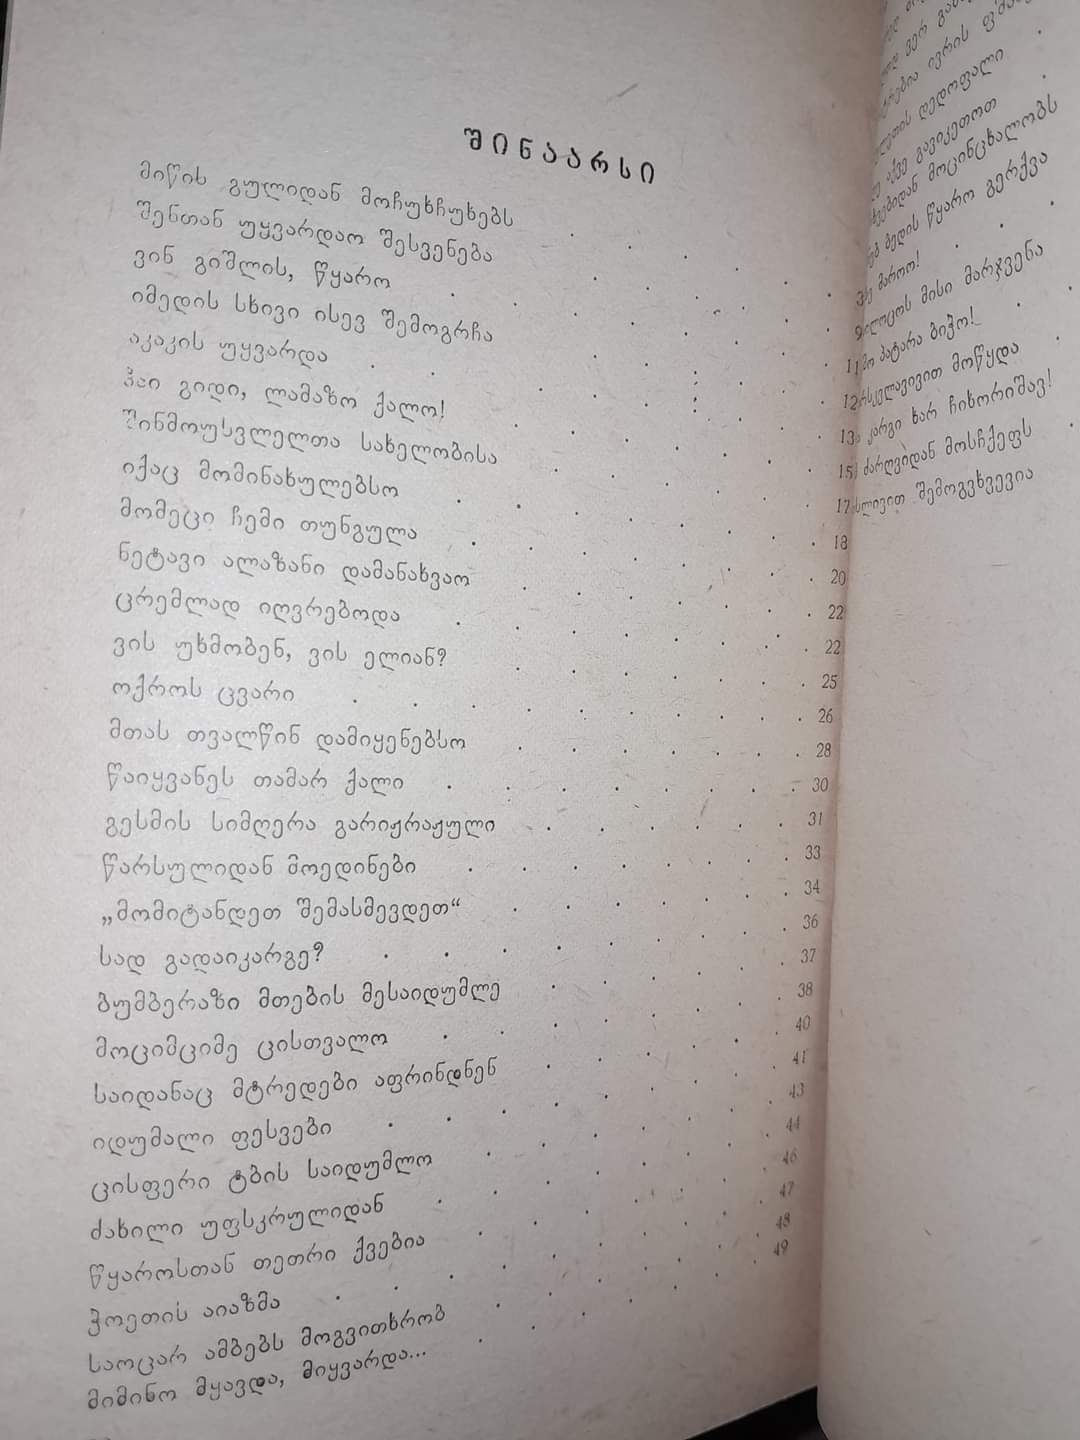 შინაარსი
მიწის გულიდან მოჩუხჩუხებს
შენთან უყვარდაო შესვენება
ვინ გიშლის, წყარო
იმედის სხივი ისევ შემოგრჩა
აკაკის უყვარდა
ჰაი გიდი, ლამაზო ქალო! 11
შინმოუსვლელთა სახელობისა 12
იქაც მომინახულებსო 13
მომეცი ჩემი თუნგულა 15
ნეტავი ალაზანი დამანახვაო 17
ცრემლად იღვრებოდა 18
ვის უხმობენ, ვის ელიან? 20
ოქროს ცვარი 22
მთას თვალწინ დამიყენებსო 22
წაიყვანეს თამარ ქალი 25
გესმის სიმღერა გარიჟრაჟული 26
წარსულიდან მოედინები 28
„მომიტანდეთ შემასმევდეთ“ 30
სად გადაიკარგე? 31
ბუმბერაზი მთების მესაიდუმლე 33
მოციმციმე ცისთვალო 34
საიდანაც მტრედები აფრინდნენ 36
იდუმალი ფესვები 37
ცისფერი ტბის საიდუმლო 38
ძახილი უფსკრულიდან 40
წყაროსთან თეთრი ქვებია 41
ჭოეთის აიაზმა 43
საოცარ ამბებს მოგვითხრობ 44
მიმინო მყავდა, მიყვარდა... 46
47
48
49
ვერ
ივრის
დედოფალი
აქვე გავიკეთოთ
მოცინცხალობს
ბედის წყარო გერქვა
მაროო!
მისი მარჯვენა
პატარა ბიჭო!
მოწყდა
კარგი ხარ ჩიხორიშავ!
ძარღვიდან მოსჩქეფს
შემოგვხვევია